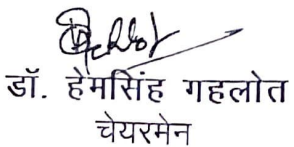 डॉ. हेमसिंह गहलोत
चेयरमेन